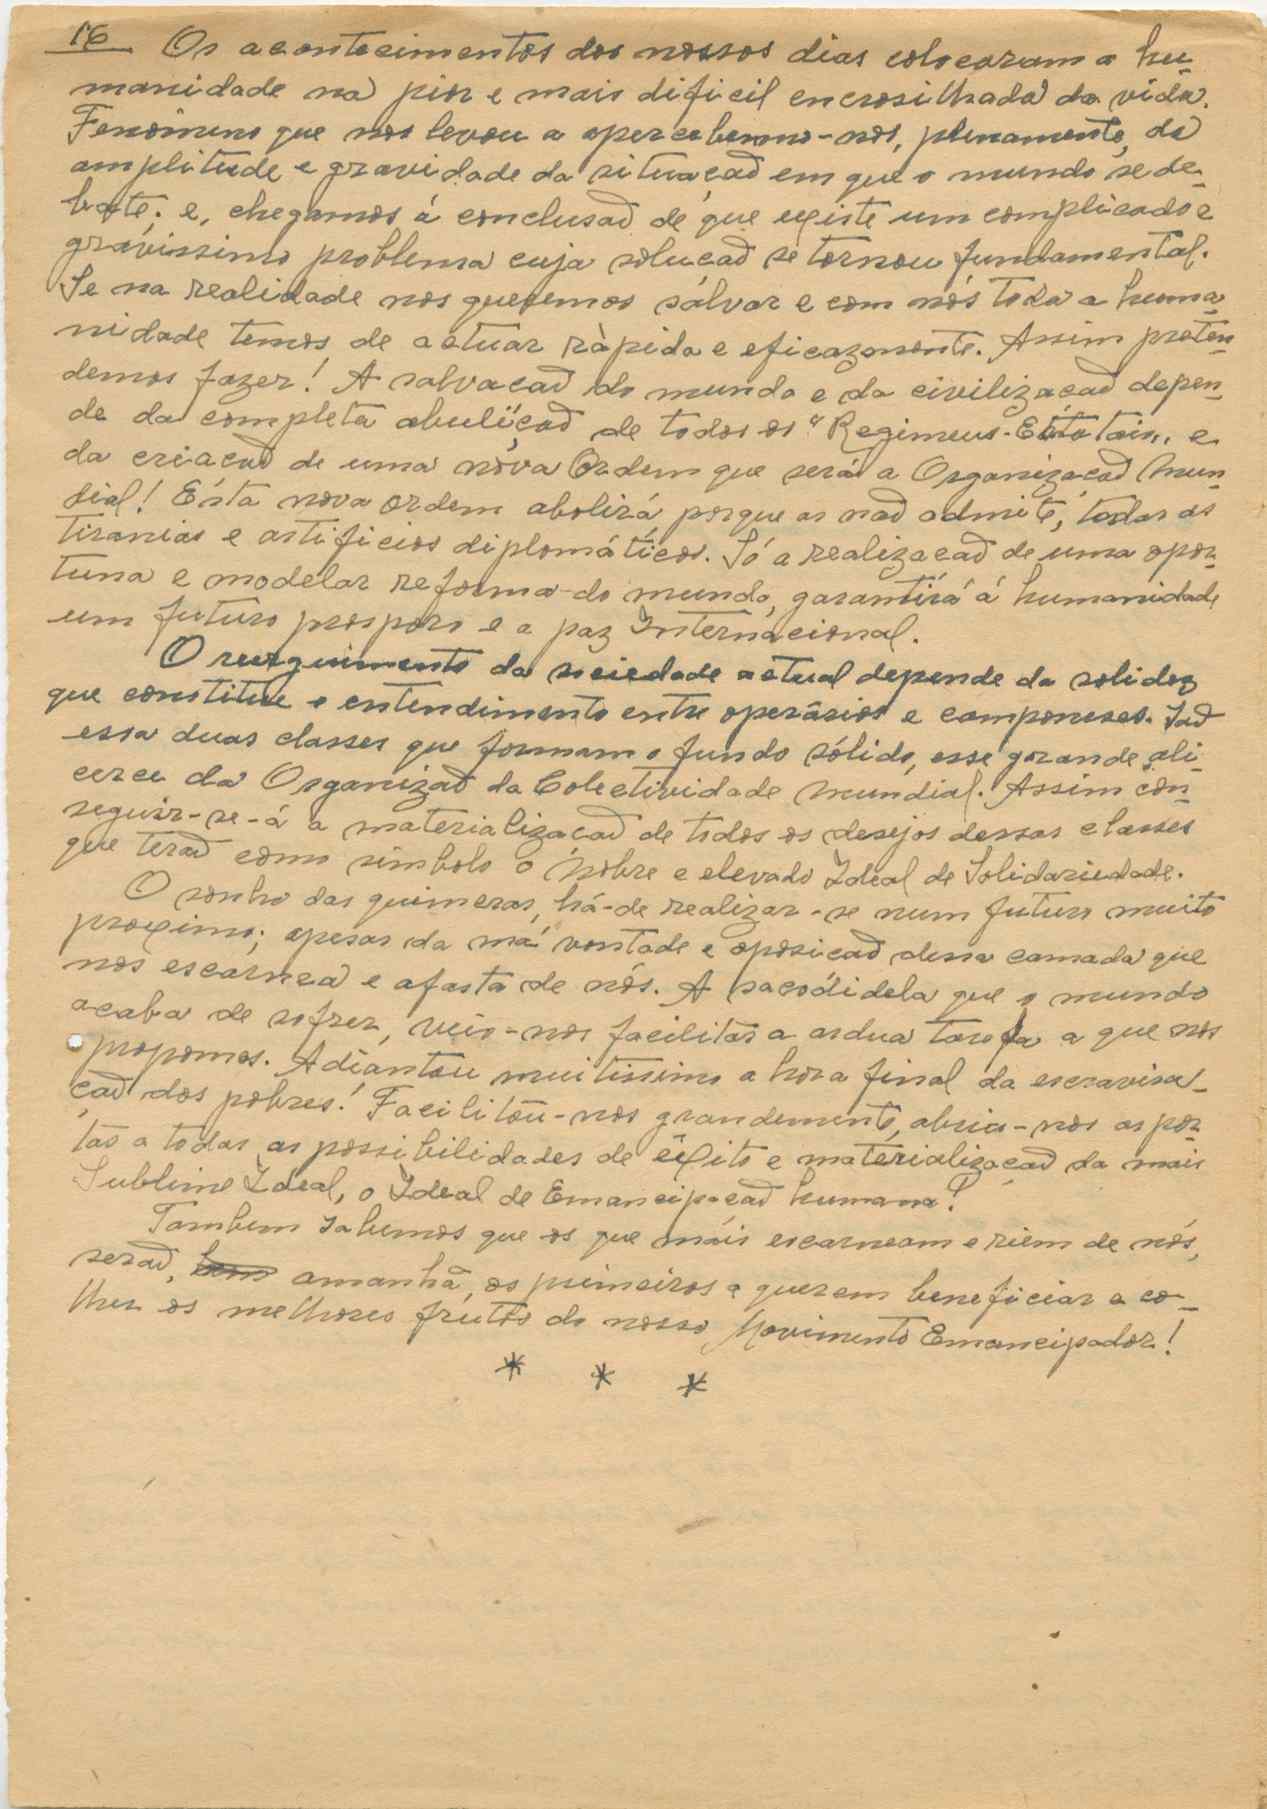 16 Os acontecimentos dos nossos dias colocaram a hu-
manidade na pior e mais dificil encrosilhada da vida.
Fenómeno que nos levou a apercebermo-nos, plenamente, da
amplitude e gravidade da situaçaõ em que o mundo se de-
bate. e, chegamos á conclusaõ de que existe um complicado e
gravissimo problema cuja soluçaõ se tornou fundamental.
Se na realidade nos queremos sálvar e com nós toda a huma-
nidade temos de actuar ràpida e eficazmente. Assim preten-
demos fazer! A salvaçaõ do mundo e da civilizaçaõ depen-
de da completa abuliçaõ de todos os "Regimeus-Estatais„ e
da criaçaõ de uma nóva Ordem que será a Organizaçaõ Mun-
dial! Ésta nova ordem abolirá, porque as naõ admite, todas as
tiranias e artificios diplomáticos. Só a realizaçaõ de uma opor-
tuna e modelar reforma do mundo, garantirá á humanidade
um futuro prospero e a paz Internacional.
O reerguimento da sociedade actual depende da solidez
que constitue o entendimento entre operários e camponeses. Saõ
essa duas classes que formam o fundo sólido, esse grande ali-
cerce da Organizaõ da Colectividade Mundial. Assim con-
seguir-se-á a materializaçaõ de todos os desejos dessas classes
que teraõ como simbolo o Nobre e elevado Ideal de Solidariedade.
O sonho das quimeras, há-de realizar-se num futuro muito
proximo; apesar da má vontade e oposicaõ dessa camada que
nos escarnea e afasta de nós. A sacódidela que o mundo
acaba de sofrer, veio-nos facilitar a ardua tarefa a que nos
propomos. Adiantou muitissimo a hora final da escravisa-
çaõ dos pobres! Facilitou-nos grandemente, abriu-nos as por-
tas a todas as possibilidades de êxito e materializaçaõ da mais
Sublime Ideal, o Ideal de Emancipaçaõ humana!
Tambem sabemos que os que máis escarneam e riem de nós,
seraõ, amanhã, os primeiros a querem beneficiar e co-
lher os melhores frutos do nosso Movimento Emancipador!
* * *